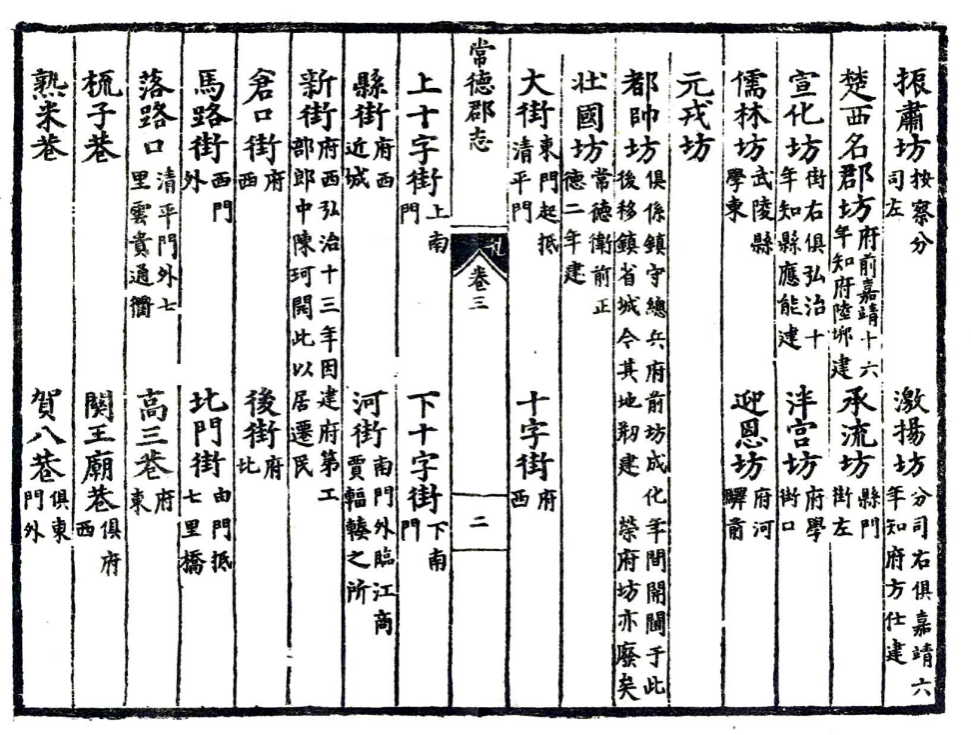 振肅坊 按察分司左 激揚坊 分司右俱嘉靖六年知府方仕建
楚西名郡坊 府前嘉靖十六年知府陸垹建 承流坊 縣門街左
宣化坊 街右俱弘治十年知縣應能建 泮宫坊 府學街口
儒林坊 武陵縣學東 迎恩坊 府河驛前
元戎坊
都帥坊 俱係鎮守總兵府前坊成化年間開閫于此後移鎮省城今其地剏建 榮府坊亦廢矣
壯國坊 常德衛前正德二年建
大街 東門起抵清平門 十字街 府西
常德郡志 卷三 二
上十字街 上南門 下十字街 下南門
縣街 府西近城 河街 南門外臨江商賈輻輳之所
新街 府西弘治十三年因建府第工部郎中陳珂開此以居遷民
倉口街 府西 後街 府北
馬路街 西門外 北門街 由門抵七里橋
落路口 清平門外七里雲貴通衢 高三巷 府東
梳子巷 関王廟巷 俱府西
熟米巷 賀八巷 俱東門外